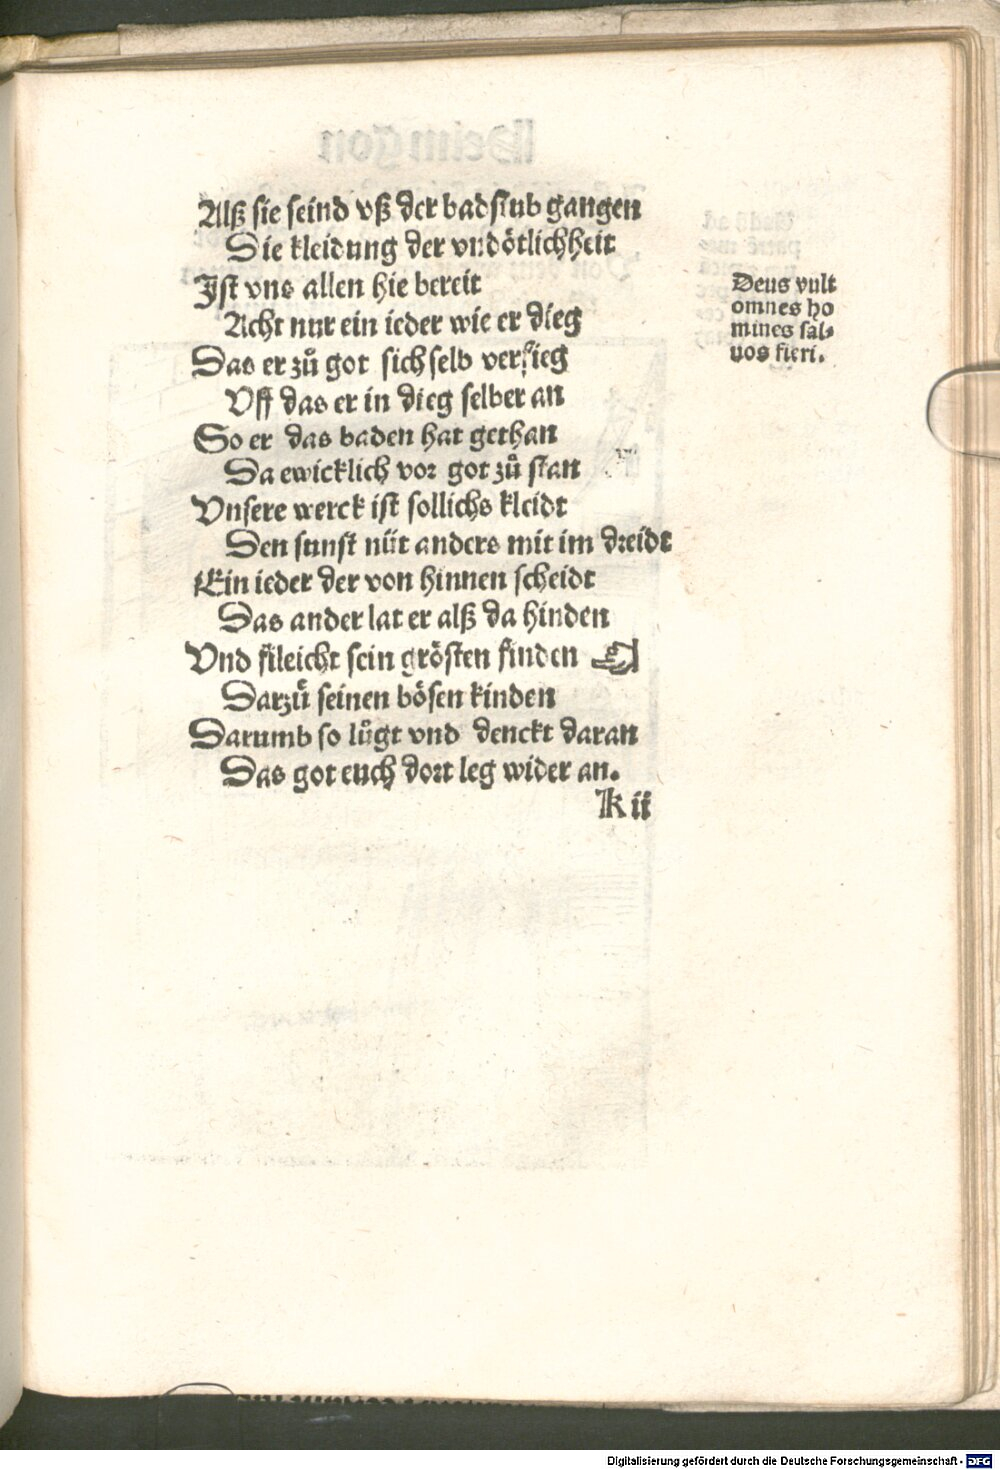 Alß sie seind vß der badstub gangen
Die kleidung der vndötlichheit
Ist vns allen hie bereit
Acht nur ein ieder wie er dieg
Das er zů got sich selb versieg
Vff das er in dieg selber an
So er das baden hat gethan
Da ewicklich vor got zů stan
Vnsere werck ist sollichs kleidt
Den sunst nüt anders mit im dreidt
Ein ieder der von hinnen scheidt
Das ander lat er alß da hinden
Vnd fileicht sein grösten finden ☜
Darzů seinen bösen kinden
Darumb so lůgt vnd denckt daran
Das got euch dort leg wider an.
K ii
Deus vult
omnes ho
mines sal-
uos fieri.
Digitalisierung gefördert durch die Deutsche Forschungsgemeinschaft - DFG